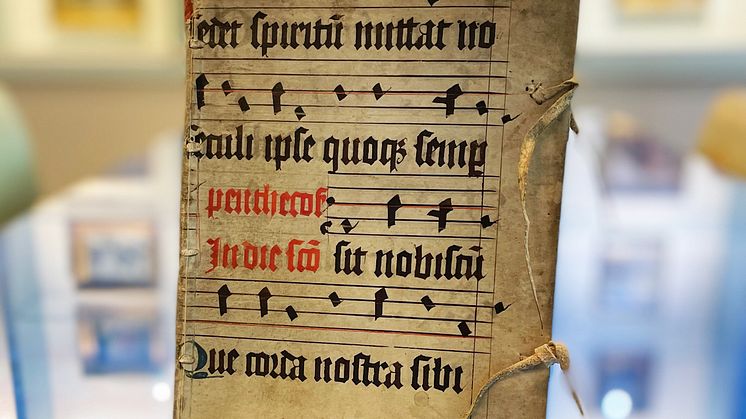 edet spiritū mittat no
eculi ipse quoqȝ semp
pentheco
In die scō sit nobiscū
Que corda nostra sibi